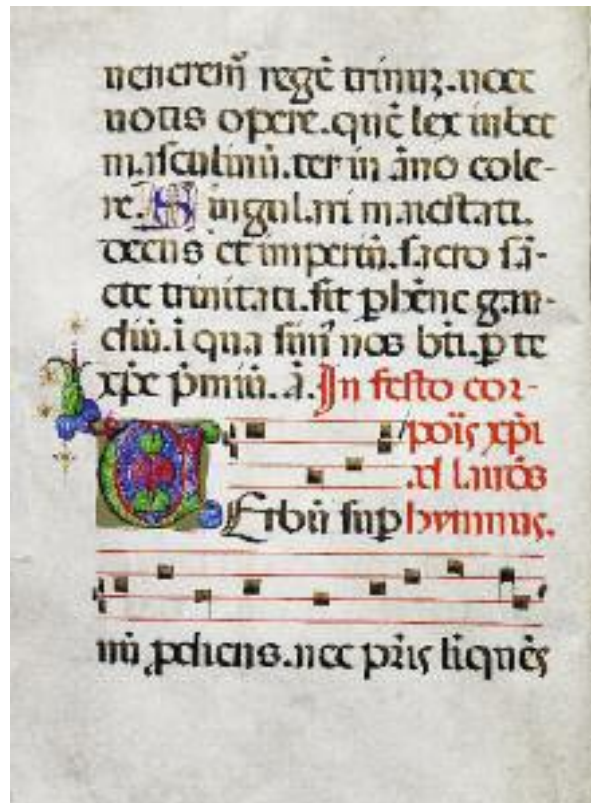 ueneremur̄ regē trinuz. uoce
uotis opere. quē lex iubet
masculinū. ter in āno cole-
re. Singulari maiestati.
decus et imperiū. sacro sā-
cte trinitati. sit phēne gau-
diū. i qua sim' nos bti. p te
xp̄e p̄miū. ā. In festo cor-
poīs xp̄i
ad laudēs
UErbū sup hymnus.
nū pdiens. nec pr̄is līquēs